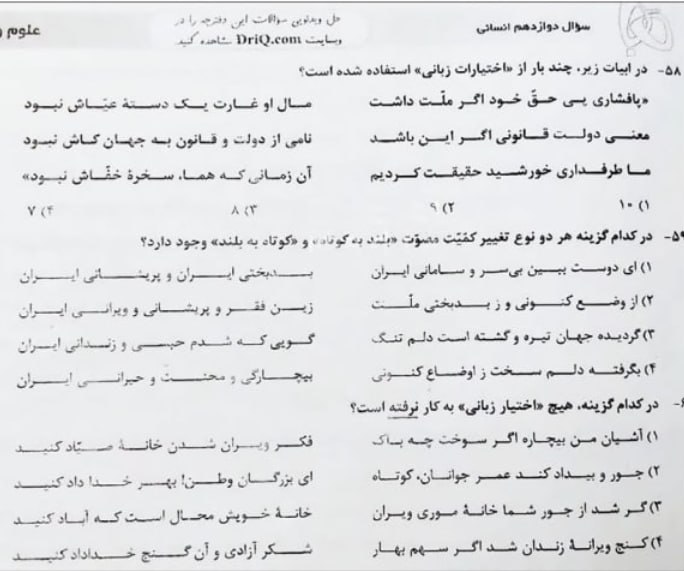 حل ویدئویی سؤالات این دفترچه را در
وبسایت DriQ.com مشاهده کنید.
سؤال دوازدهم انسانی
علوم و
۵۸- در ابیات زیر، چند بار از «اختیارات زبانی» استفاده شده است؟
«پافشاری پی حقّ خود اگر ملّت داشت مال او غارت یک دستهٔ عیّاش نبود
معنی دولت قانونی اگر این باشد نامی از دولت و قانون به جهان کاش نبود
ما طرفداری خورشید حقیقت کردیم آن زمانی که هما، سخرهٔ خفّاش نبود»
۱) ۱۰ ۲) ۹ ۳) ۸ ۴) ۷
۵۹- در کدام گزینه هر دو نوع تغییر کمّیّت مصوّت «بلند به کوتاه» و «کوتاه به بلند» وجود دارد؟
۱) ای دوست ببین بی‌سر و سامانی ایران بدبختی ایران و پریشانی ایران
۲) از وضع کنونی و ز بدبختی ملّت زین فقر و پریشانی و ویرانی ایران
۳) گردیده جهان تیره و گشته است دلم تنگ گویی که شدم حبسی و زندانی ایران
۴) بگرفته دلم سخت ز اوضاع کنونی بیچارگی و محنت و حیرانی ایران
در کدام گزینه، هیچ «اختیار زبانی» به کار نرفته است؟
۱) آشیان من بیچاره اگر سوخت چه باک فکر ویران شدن خانهٔ صیّاد کنید
۲) جور و بیداد کند عمر جوانان، کوتاه ای بزرگان وطن! بهر خدا داد کنید
۳) گر شد از جور شما خانهٔ موری ویران خانهٔ خویش محال است که آباد کنید
۴) کنج ویرانهٔ زندان شد اگر سهم بهار شکر آزادی و آن گنج خداداد کنید